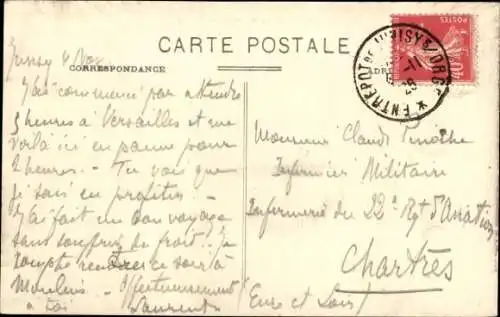 CARTE POSTALE
CORRESPONDANCE
ADR
POSTES
ENTREPOT DE JUVISY S/ ORGE
11
Juvisy 4 Nov
J'ai commencé par attendre
3 heures à Versailles et me
voilà ici en panne pour
2 heures. - Tu vois que
je sais en profiter -
J'ai fait un bon voyage
sans souffrir de froit. Je
compte ce soir à
Moulins. Affectueusement
à toi
Laurent
Monsieur Claude
Infirmier Militaire
Infirmerie du 22e Rgt d'Aviation
Chartres
(Eure et Loir)